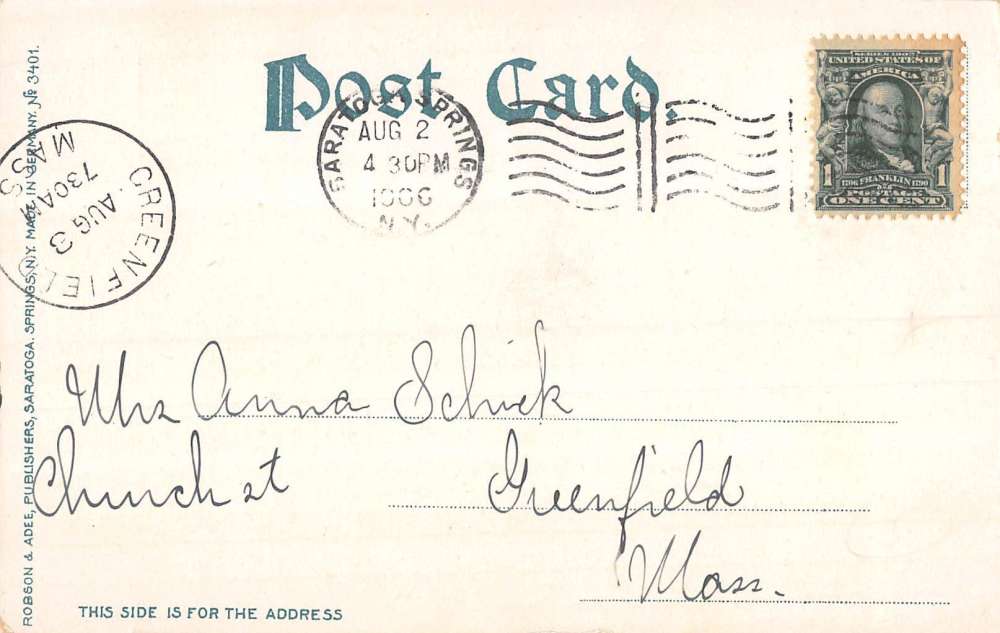 Post Card.
SARATOGA SPRINGS
AUG 2
4 30PM
1906
N.Y.
SERIES 1902
UNITED STATES OF
AMERICA
1 1
1706 FRANKLIN 1790
POSTAGE
ONE CENT
GREENFIELD
MASS
730AM
AUG
3
ROBSON & ADEE, PUBLISHERS, SARATOGA. SPRINGS, N.Y. MADE IN GERMANY. No 3401.
Mrs Anna Schick
Church st Greenfield
Mass.
THIS SIDE IS FOR THE ADDRESS